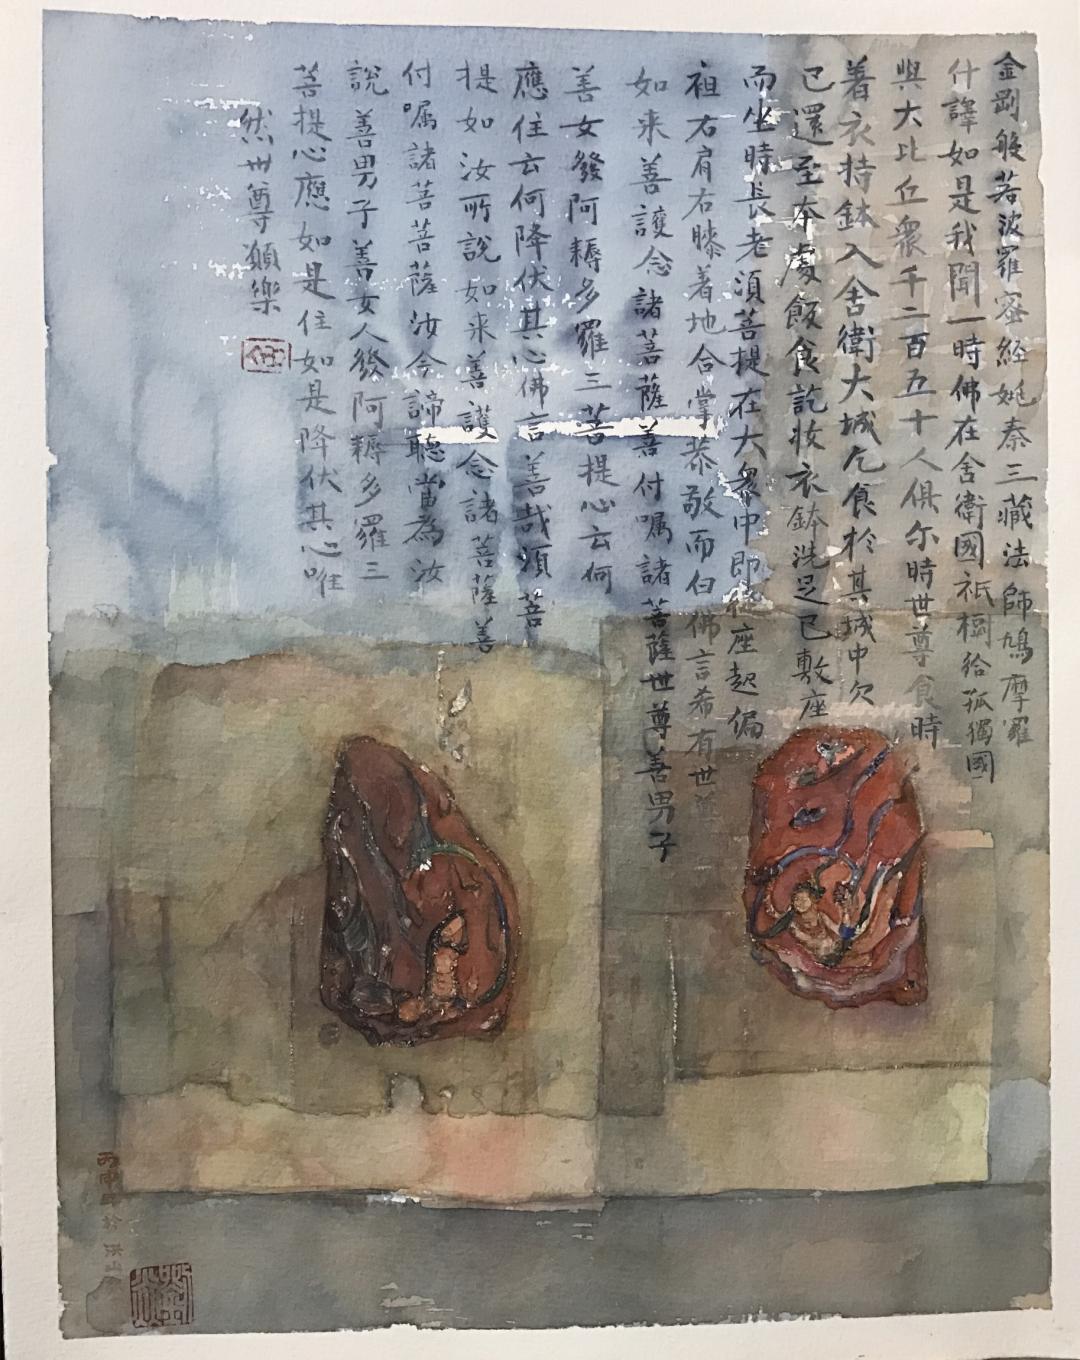 金剛般若波羅密经姚秦三藏法師鳩摩羅
什譯如是我聞一時佛在舍衛國祇樹给孤獨國
與大比丘眾千二百五十人俱尔時世尊食時
着衣持鉢入舍衛大城乞食於其城中次
已還至本處飯食訖妝衣鉢洗足已敷座
而坐時長老須菩提在大眾中即從座起偏
袒右肩右膝着地合掌恭敬而白佛言希有世尊
如来善護念諸菩薩善付嘱諸菩薩世尊善男子
善女發阿耨多羅三菩提心云何
應住云何降伏其心佛言善哉須菩
提如汝所說如来善護念諸菩薩善
付嘱諸菩菩薩汝今諦聽當為汝
說善男子善女人發阿耨多羅三
菩提心應如是住如是降伏其心唯
然世尊願樂
丙申